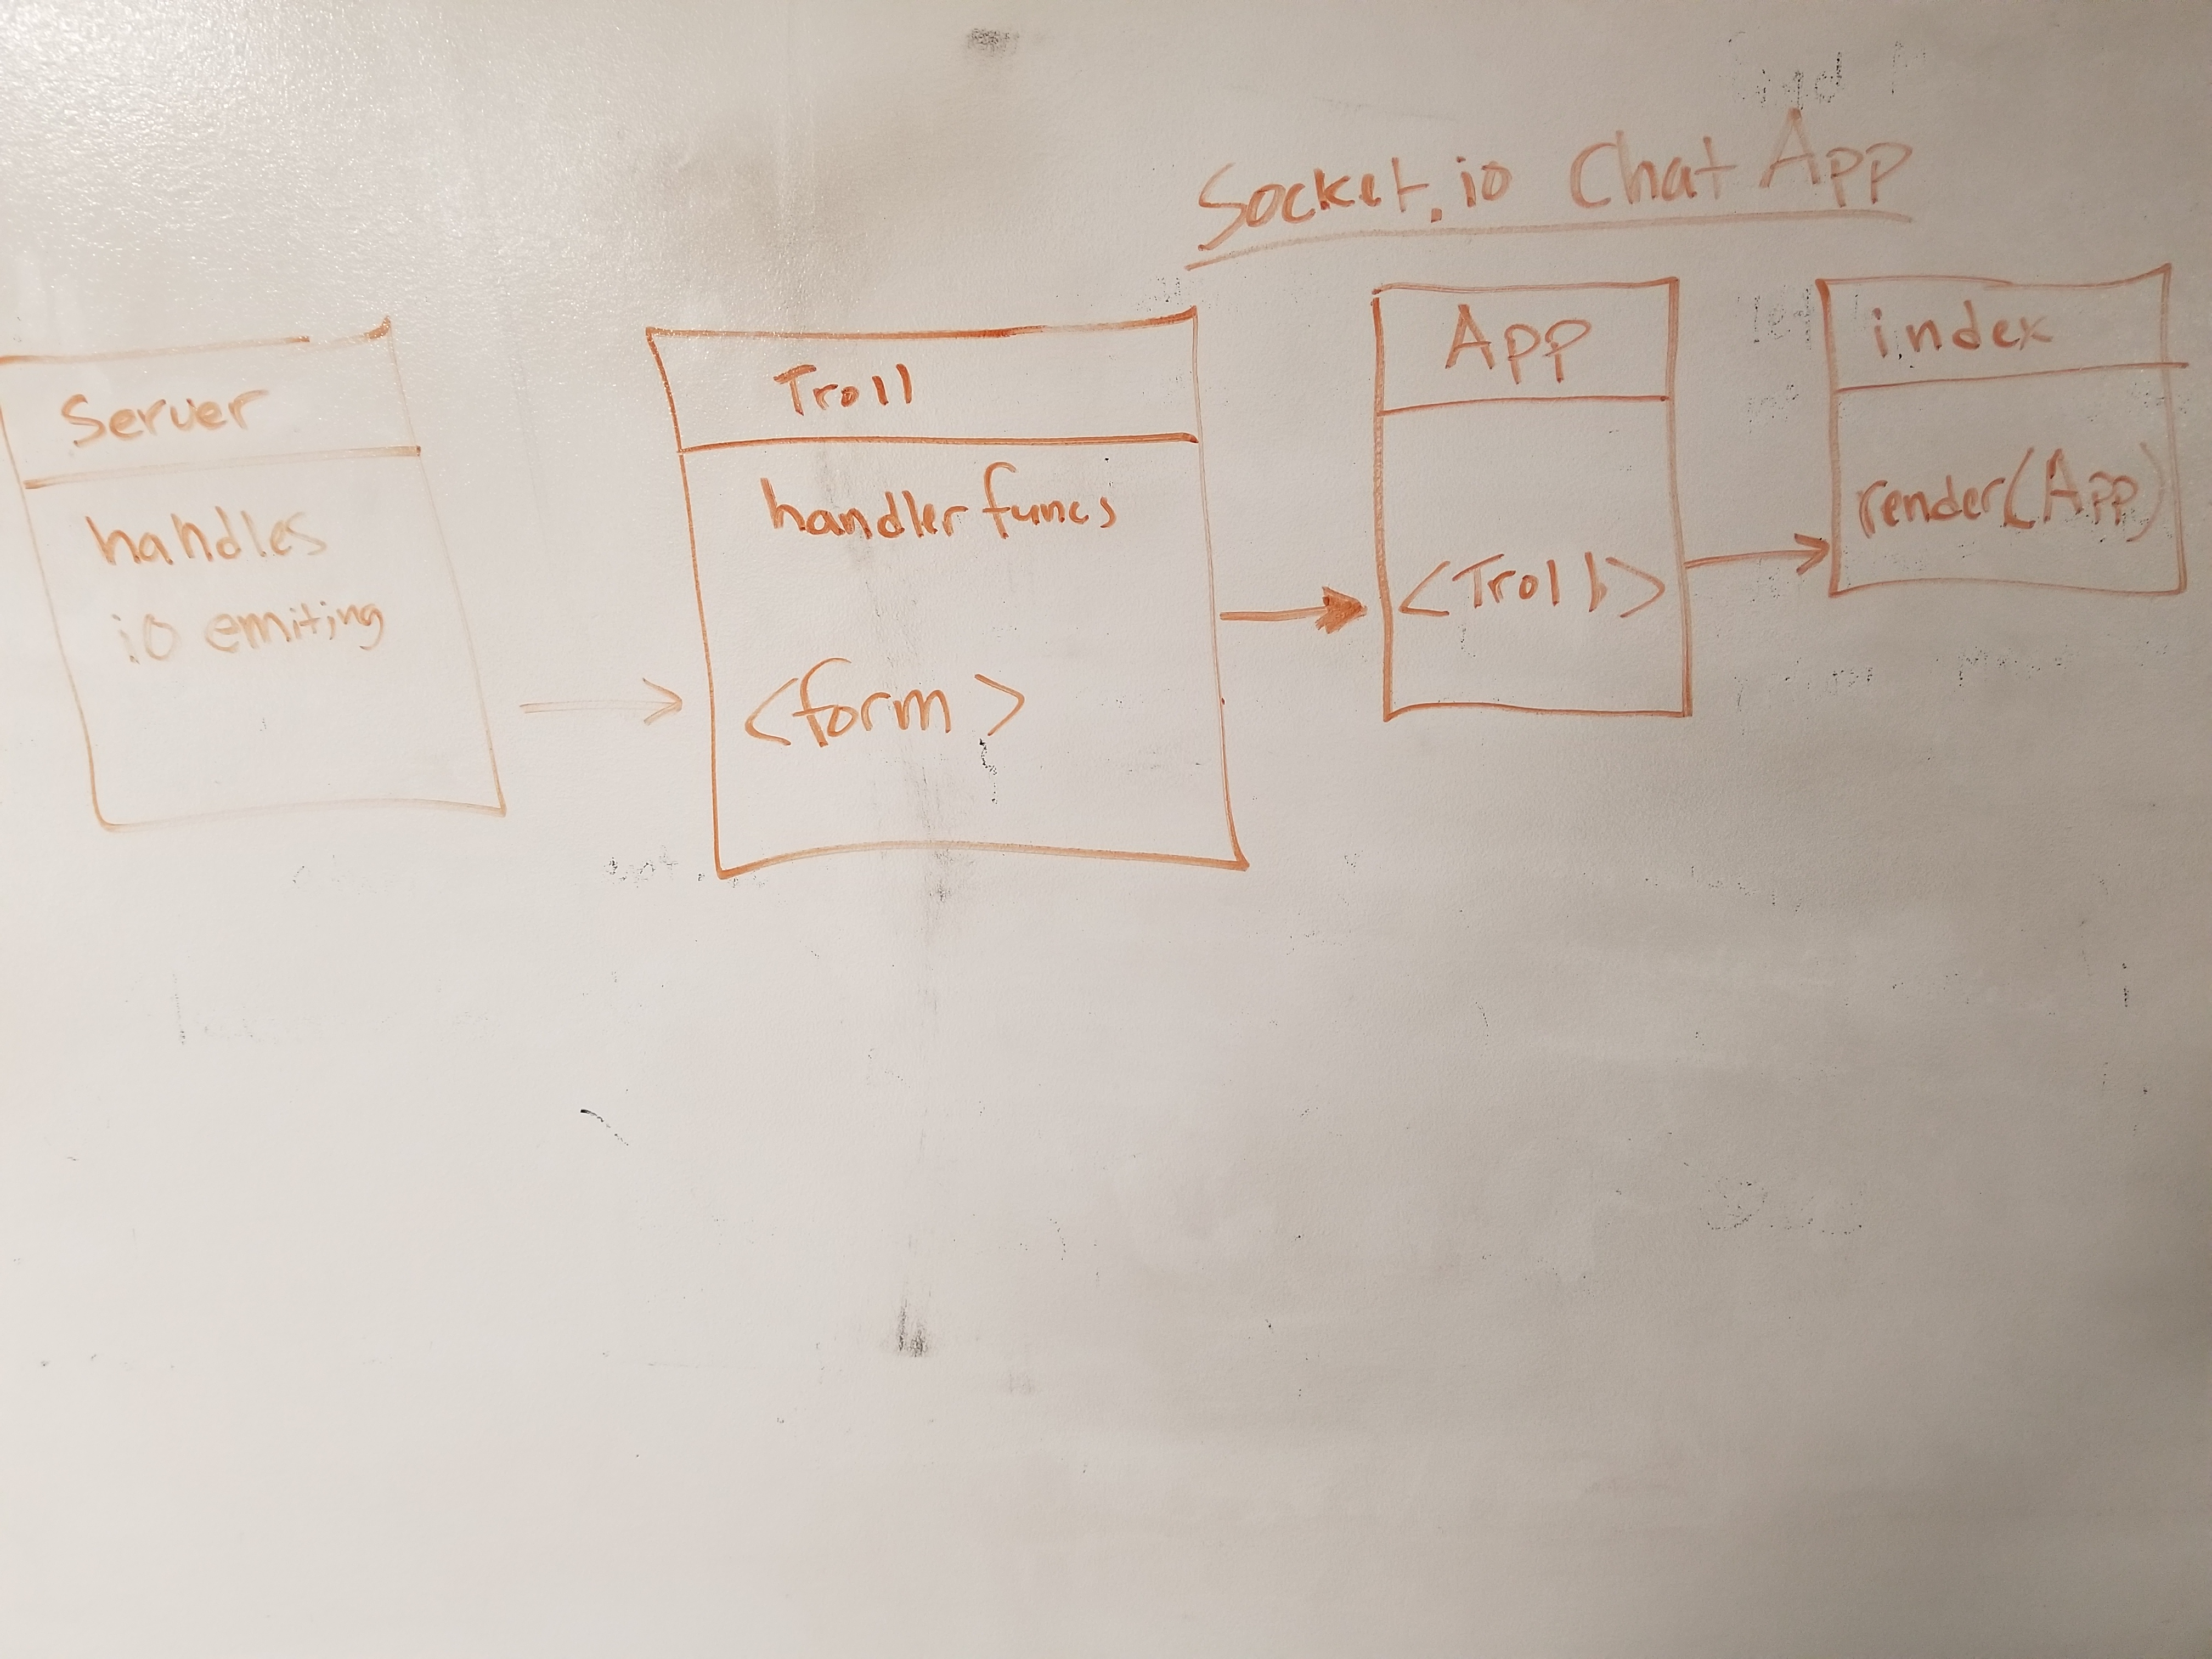 Socket.io Chat App
Server
handles
io emiting
Troll
handler funcs
<form >
App
<Troll>
index
render(App)